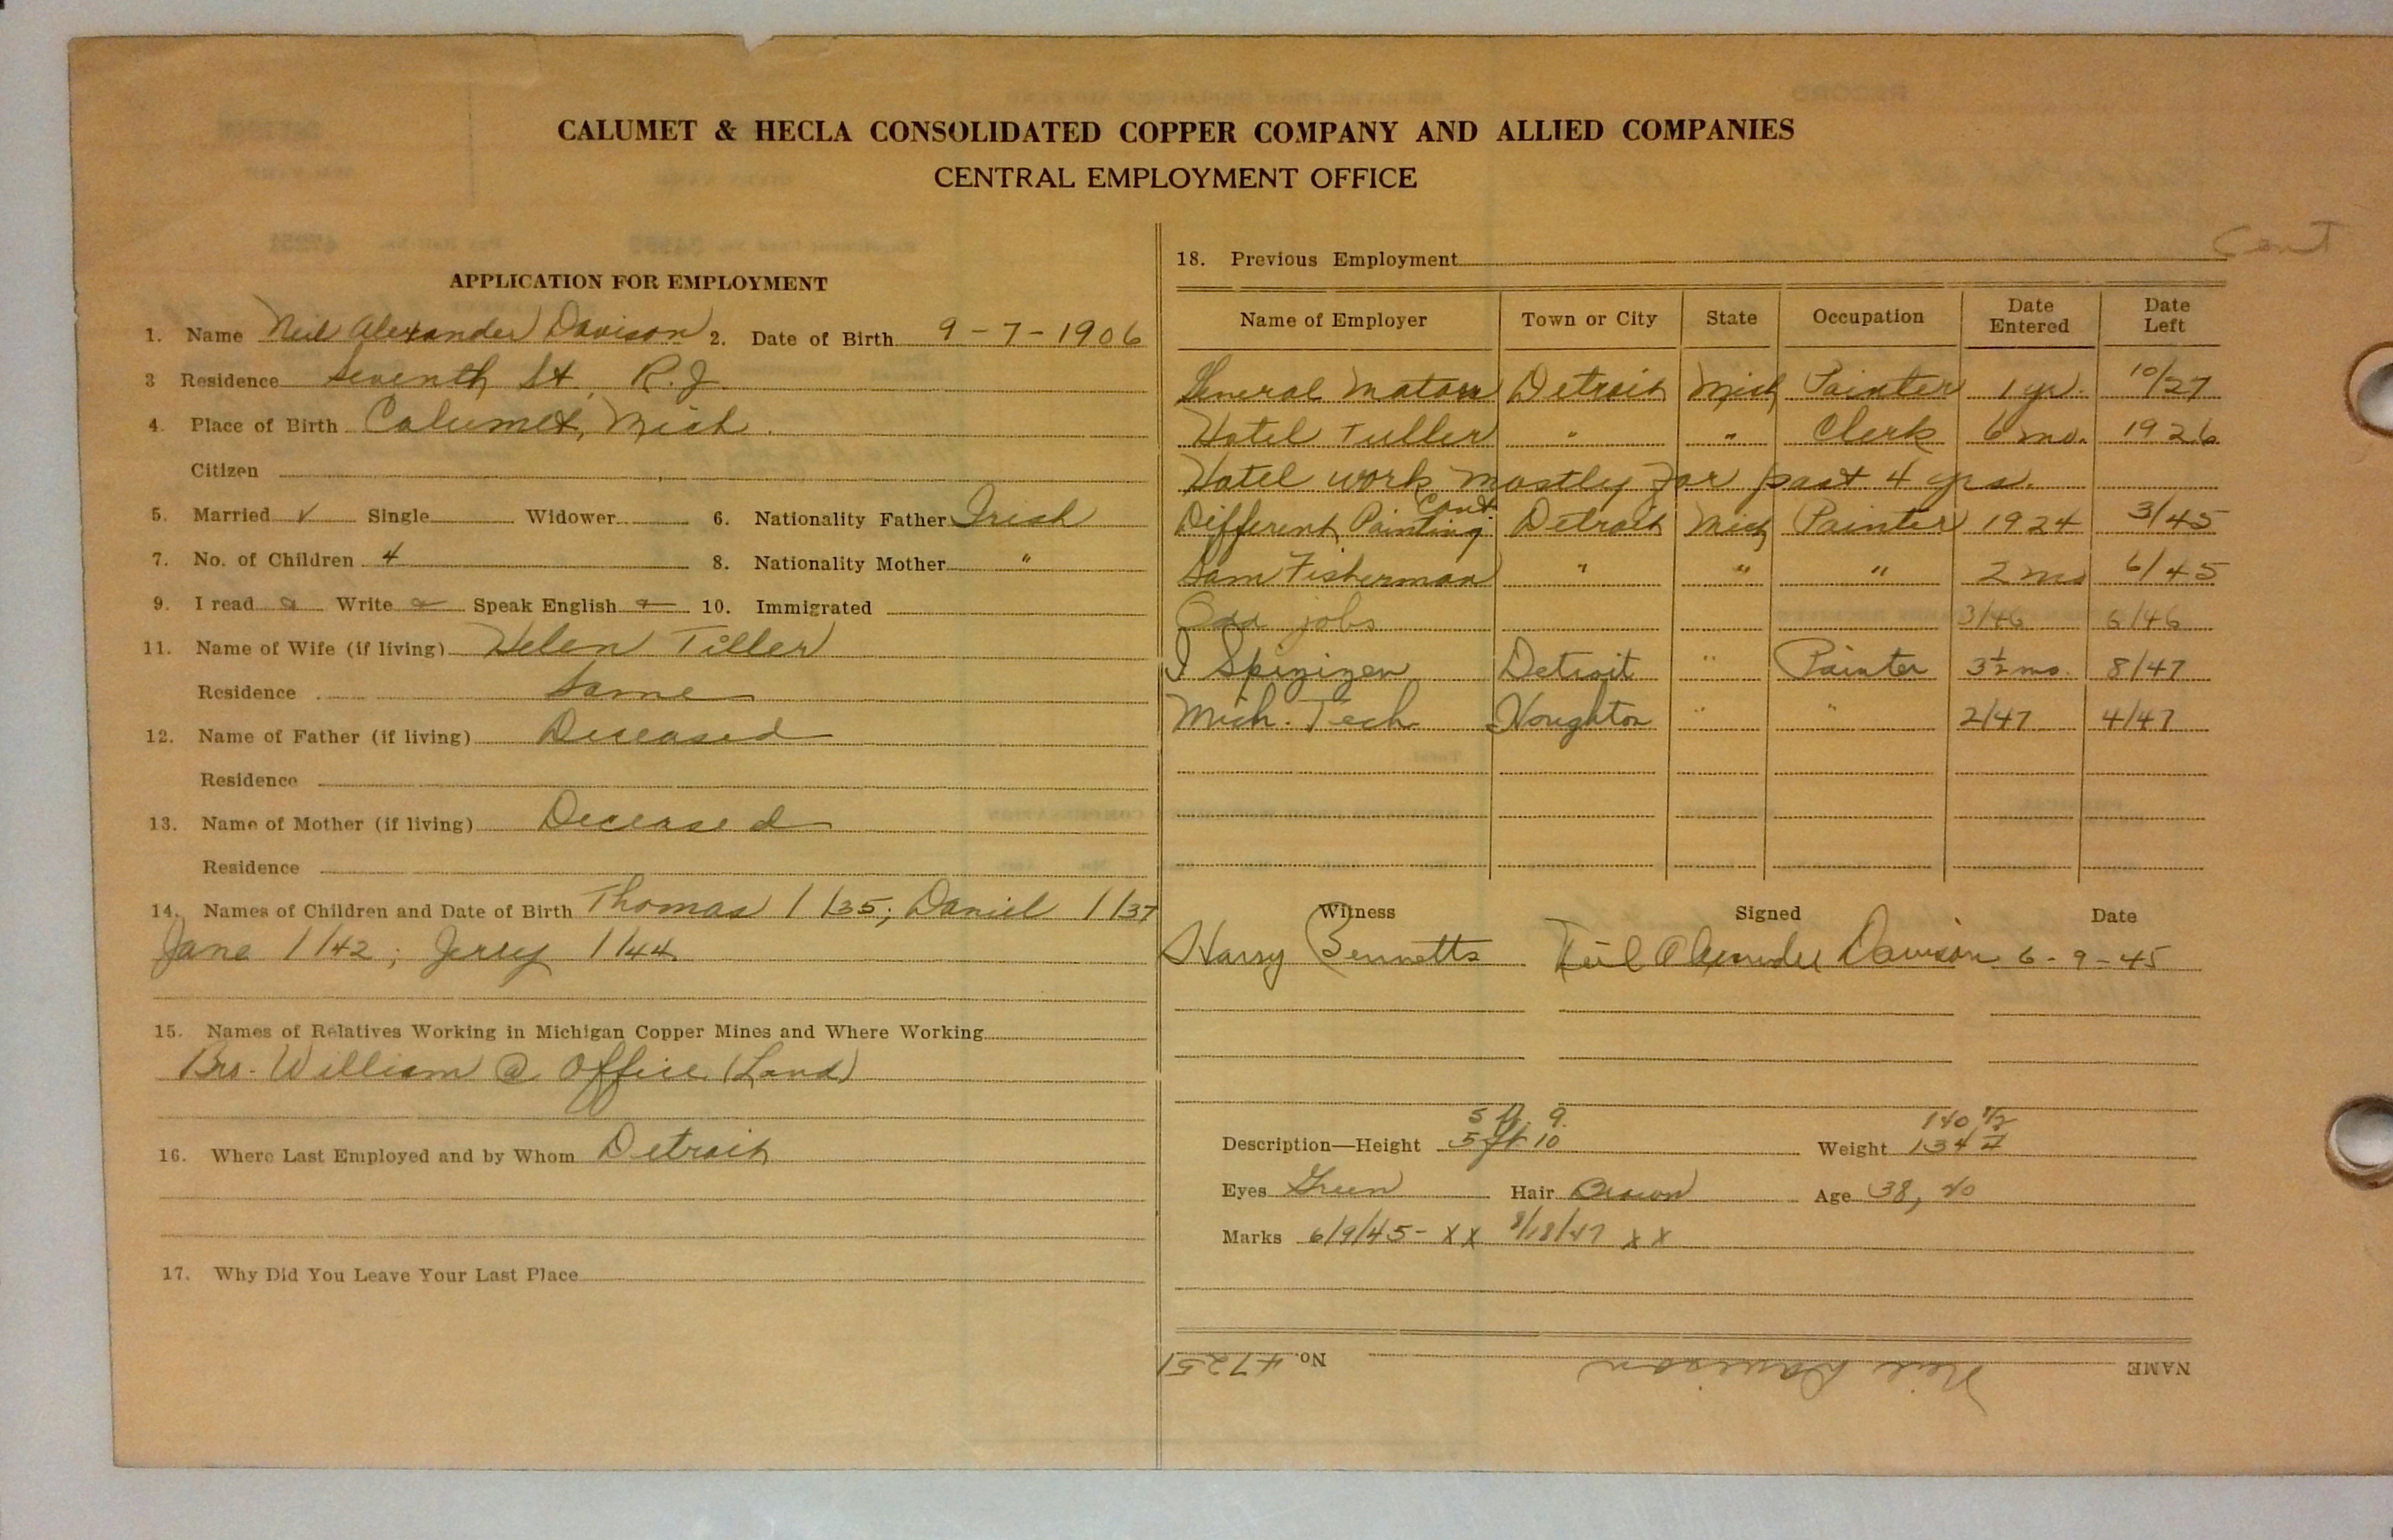 CALUMET & HECLA CONSOLIDATED COPPER COMPANY AND ALLIED COMPANIES
CENTRAL EMPLOYMENT OFFICE
APPLICATION FOR EMPLOYMENT
1. Name Neil Alexander Davison 2. Date of Birth 9-7-1906
3 Residence Seventh St, R.J.
4. Place of Birth Calumet, Mich.
Citizen
5. Married ✓ Single Widower 6. Nationality Father Irish
7. No. of Children 4 8. Nationality Mother "
9. I read Write Speak English 10. Immigrated
11. Name of Wife (if living) Helen Tiller
Residence Same
12. Name of Father (if living) Deceased
Residence
13. Name of Mother (if living) Deceased
Residence
14. Names of Children and Date of Birth Thomas 1/35; Daniel 1/37
Jane 1/42; Jerry 1/44
15. Names of Relatives Working in Michigan Copper Mines and Where Working
Bro. William @ Office (Land)
16. Where Last Employed and by Whom Detroit
17. Why Did You Leave Your Last Place
Cont
18. Previous Employment
Name of Employer Town or City State Occupation Date Entered Date Left
General Motors Detroit Mich Painter 1 yr. 10/27
Hotel Tuller " " Clerk 6 mo. 1926
Hotel work mostly for past 4 yrs.
Different Painting Cont. Detroit Mich Painter 1924 3/45
Sam Fisherman " " " 2 mo 6/45
Odd jobs 3/46 6/46
I Spizizen Detroit " Painter 3½ mo. 8/47
Mich. Tech. Houghton " " 2/47 4/47
Witness Signed Date
Harry Bennetts Neil Alexander Davison 6-9-45
5 ft. 9. 140 1/2
Description—Height 5 ft 10 Weight 134 #
Eyes Green Hair Brown Age 38, 40
Marks 6/9/45 - xx 8/18/47 xx
NAME Neil Davison No. 47251